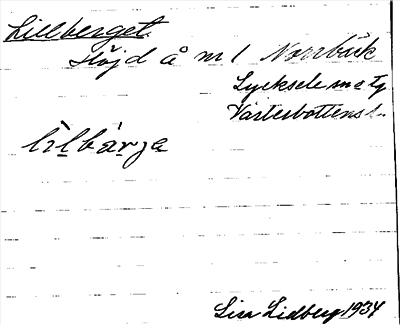 Lillberget.
Höjd å m l Norrbäck
Lycksele
Västerbottens l.
Lisa Lidberg 1934